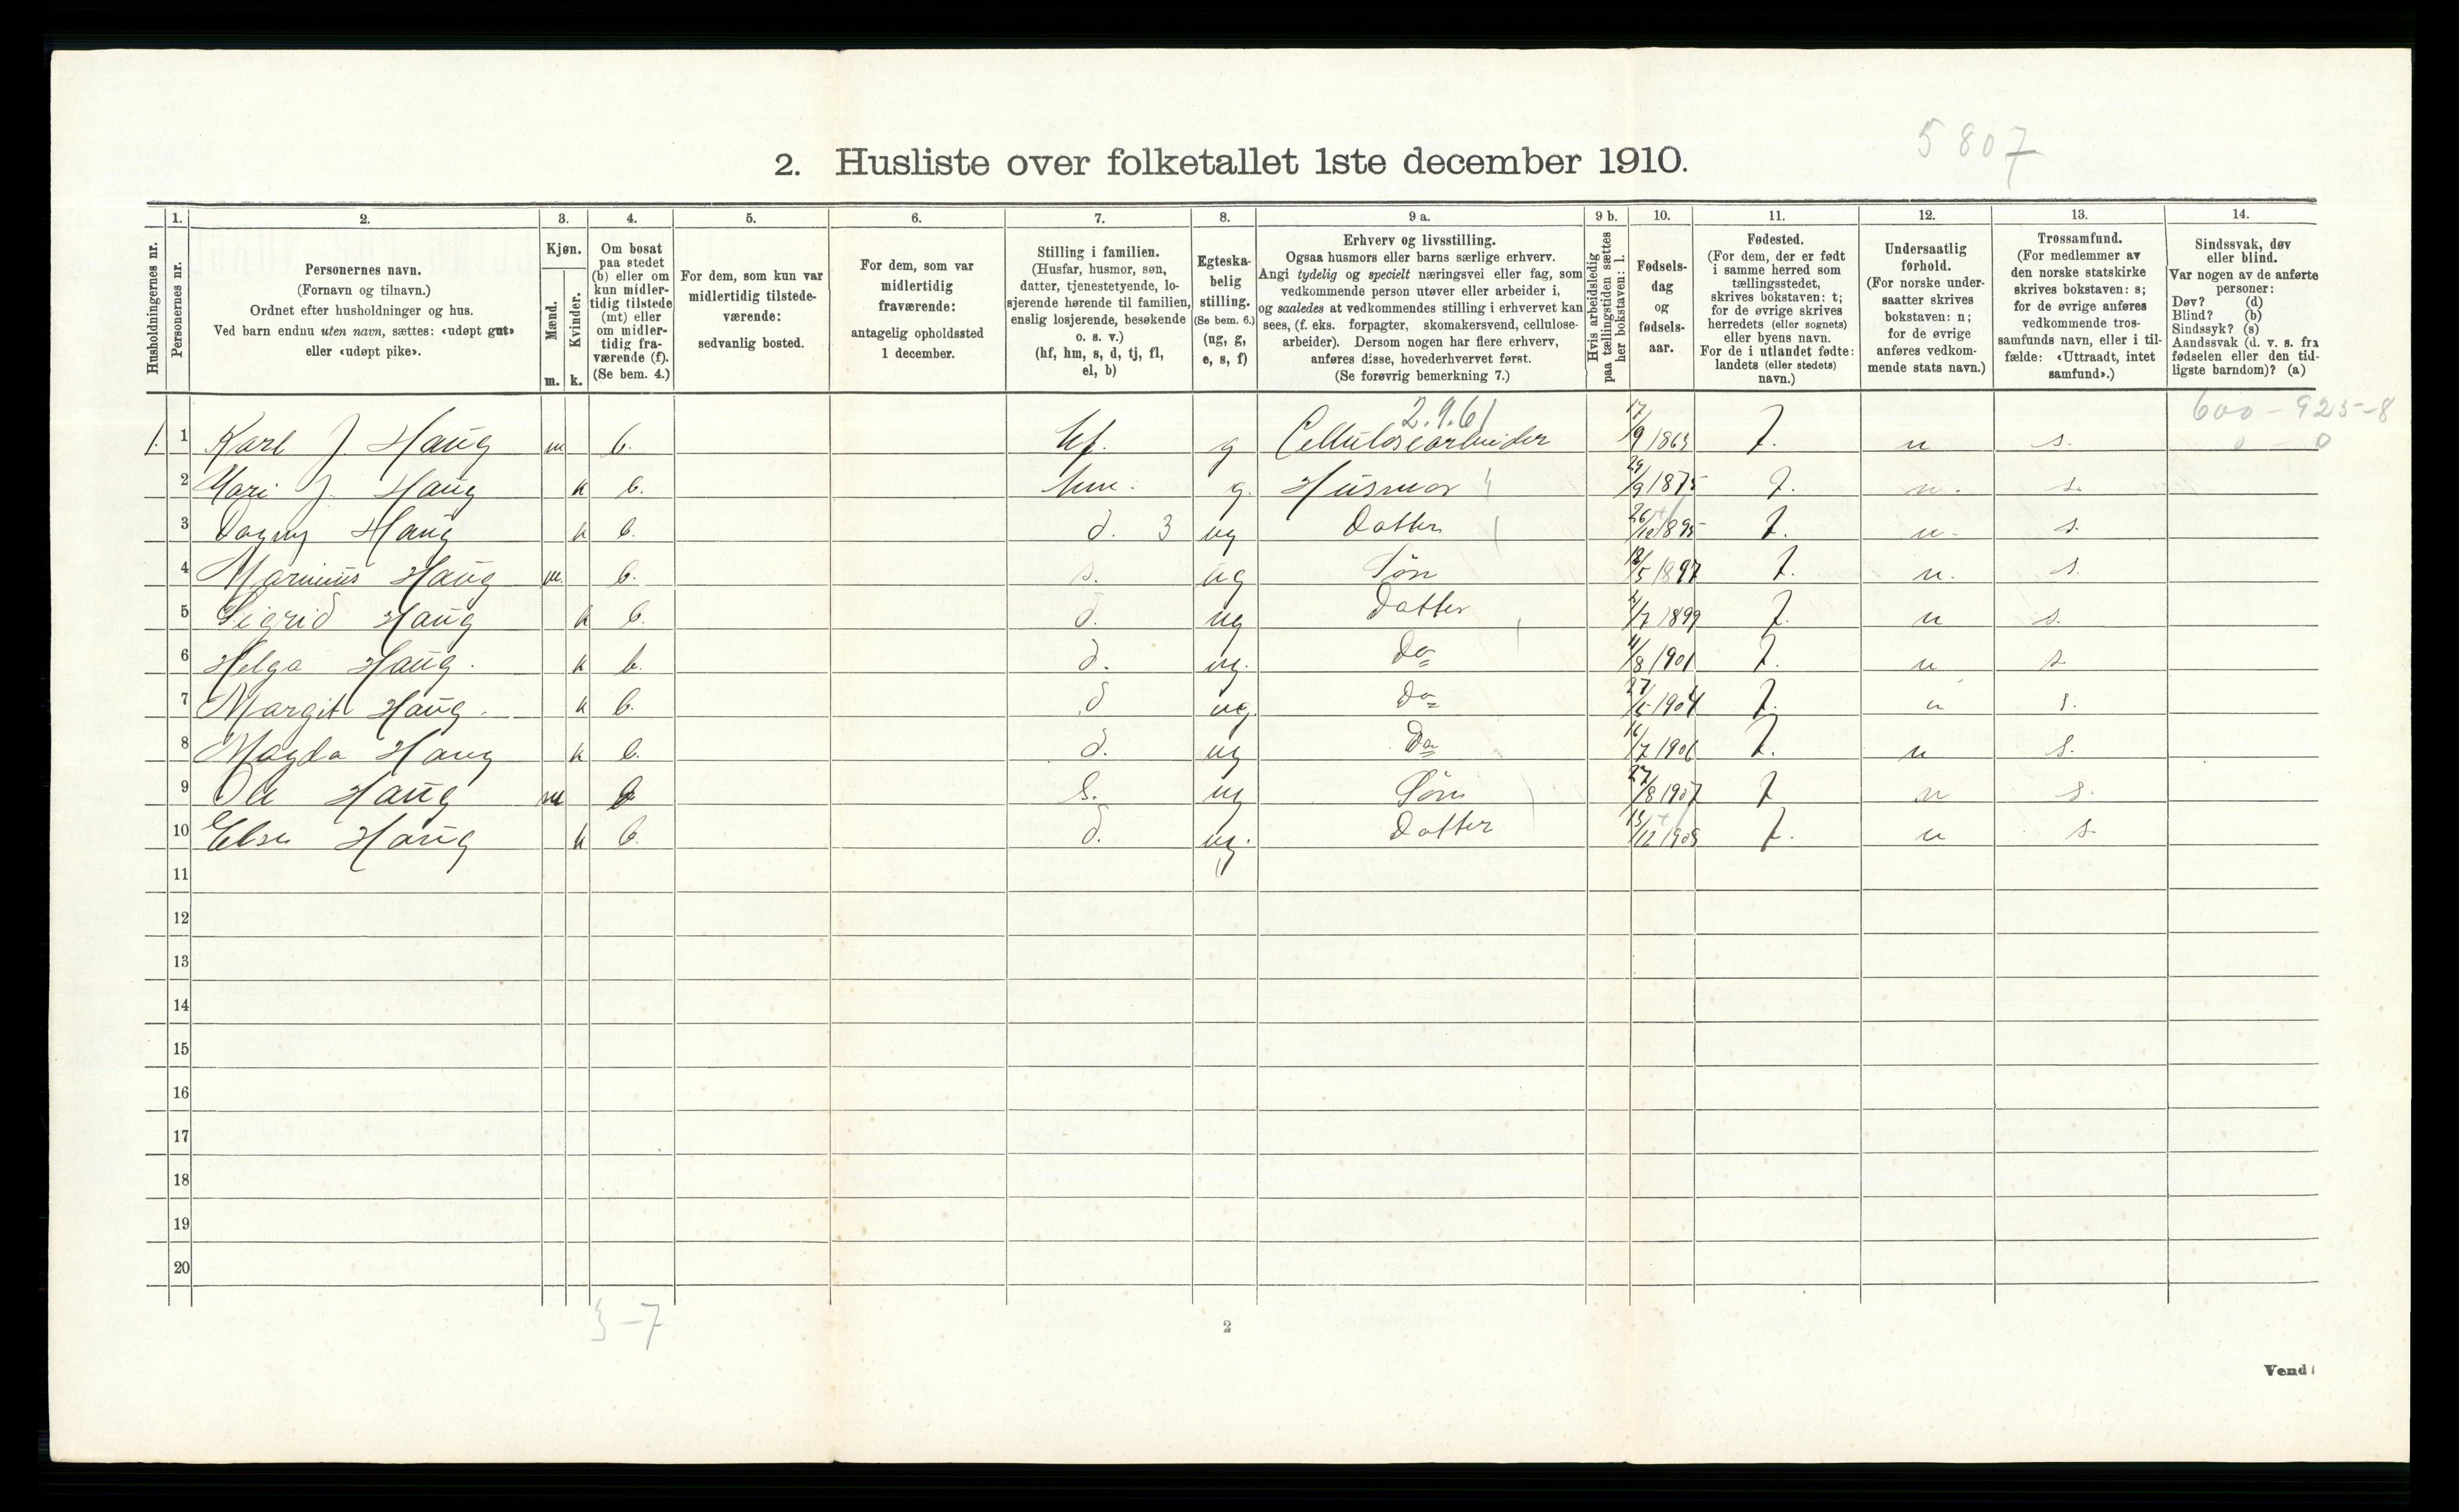 5807
2. Husliste over folketallet 1ste december 1910.
Husholdningernes nr.
1.
Personernes nr.
2.
Personernes navn.
(Fornavn og tilnavn.)
Ordnet efter husholdninger og hus.
Ved barn endnu uten navn, sættes: «udøpt gut»
eller «udøpt pike».
3.
Kjøn.
Mænd.
Kvinder.
m. k.
4.
Om bosat
paa stedet
(b) eller om
kun midler-
tidig tilstede
(mt) eller
om midler-
tidig fra-
værende (f).
(Se bem. 4.)
5.
For dem, som kun var
midlertidig tilstede-
værende:
sedvanlig bosted.
6.
For dem, som var
midlertidig
fraværende:
antagelig opholdssted
1 december.
7.
Stilling i familien.
(Husfar, husmor, søn,
datter, tjenestetyende, lo-
sjerende hørende til familien,
enslig losjerende, besøkende
o. s. v.)
(hf, hm, s, d, tj, fl,
el, b)
8.
Egteska-
belig
stilling.
(Se bem. 6.)
(ug, g,
e, s, f)
9 a.
Erhverv og livsstilling.
Ogsaa husmors eller barns særlige erhverv.
Angi tydelig og specielt næringsvei eller fag, som
vedkommende person utøver eller arbeider i,
og saaledes at vedkommendes stilling i erhvervet kan
sees, (f. eks. forpagter, skomakersvend, cellulose-
arbeider). Dersom nogen har flere erhverv,
anføres disse, hovederhvervet først.
(Se forøvrig bemerkning 7.)
9 b.
Hvis arbeidsledig
paa tællingstiden sættes
her bokstaven: l.
10.
Fødsels-
dag
og
fødsels-
aar.
11.
Fødested.
(For dem, der er født
i samme herred som
tællingsstedet,
skrives bokstaven: t;
for de øvrige skrives
herredets (eller sognets)
eller byens navn.
For de i utlandet fødte:
landets (eller stedets)
navn.)
12.
Undersaatlig
forhold.
(For norske under-
saatter skrives
bokstaven: n;
for de øvrige
anføres vedkom-
mende stats navn.)
13.
Trossamfund.
(For medlemmer av
den norske statskirke
skrives bokstaven: s;
for de øvrige anføres
vedkommende tros-
samfunds navn, eller i til-
fælde: «Uttraadt, intet
samfund».)
14.
Sindssvak, døv
eller blind.
Var nogen av de anførte
personer:
Døv? (d)
Blind? (b)
Sindssyk? (s)
Aandssvak (d. v. s. fra
fødselen eller den tid-
ligste barndom)? (a)
2.9.61 600-925-8
1. 1 Karl J. Haug m b. hf. g Cellulosearbeider 17/9 1863 t. n s. 0 - 0
2 Mari J. Haug k b. hm. g. Husmor 29/9 1875 t. n. s.
3 Dagny Haug k b. d. 3 ug Datter 26/12 1895 t. n. s.
4 Marinius Haug m. b. s. ug Søn 18/5 1897 t. n. s.
5 Sigrid Haug k b. d. ug Datter /7 1899 t. n s.
6 Helga Haug. k b. d. ug. Do 11/8 1901 t. n s.
7 Margit Haug. k b. d ug. Do 27/5 1904 t. n s.
8 Magda Haug k b. d. ug Do 16/7 1906 t. n s.
9 Ole Haug m b s. ug Søn 27/8 1907 t n s.
10 Else Haug k b. d. ug. Datter 13/12 1908 t. n s.
11
12
13
14
15
16
17
18
19
20
3-7
2
Vend!